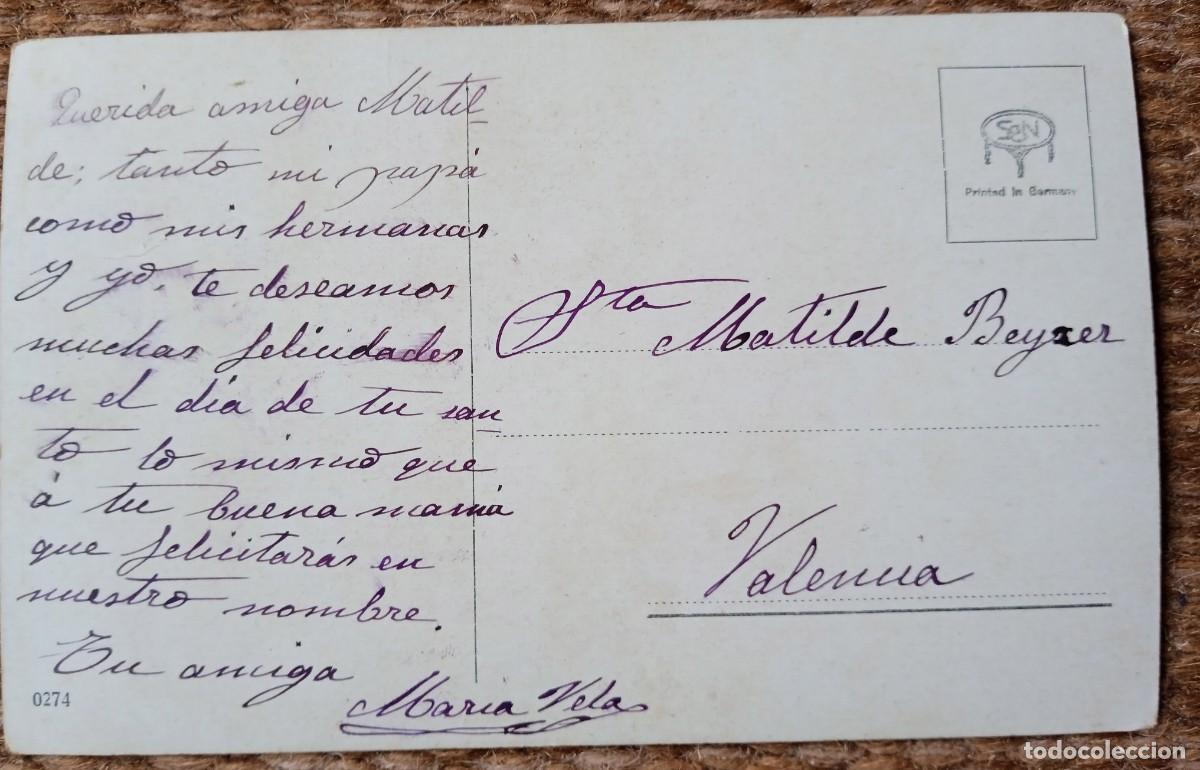 Querida amiga Matil-
de; tanto mi papá
como mis hermanas
y yo, te deseamos
muchas felicidades
en el día de tu san-
to lo mismo que
á tu buena mamá
que felicitarás en
nuestro nombre.
Tu amiga
María Vela
0274
S&N
Printed in Germany
Sta Matilde Beyxer
Valencia
todocoleccion